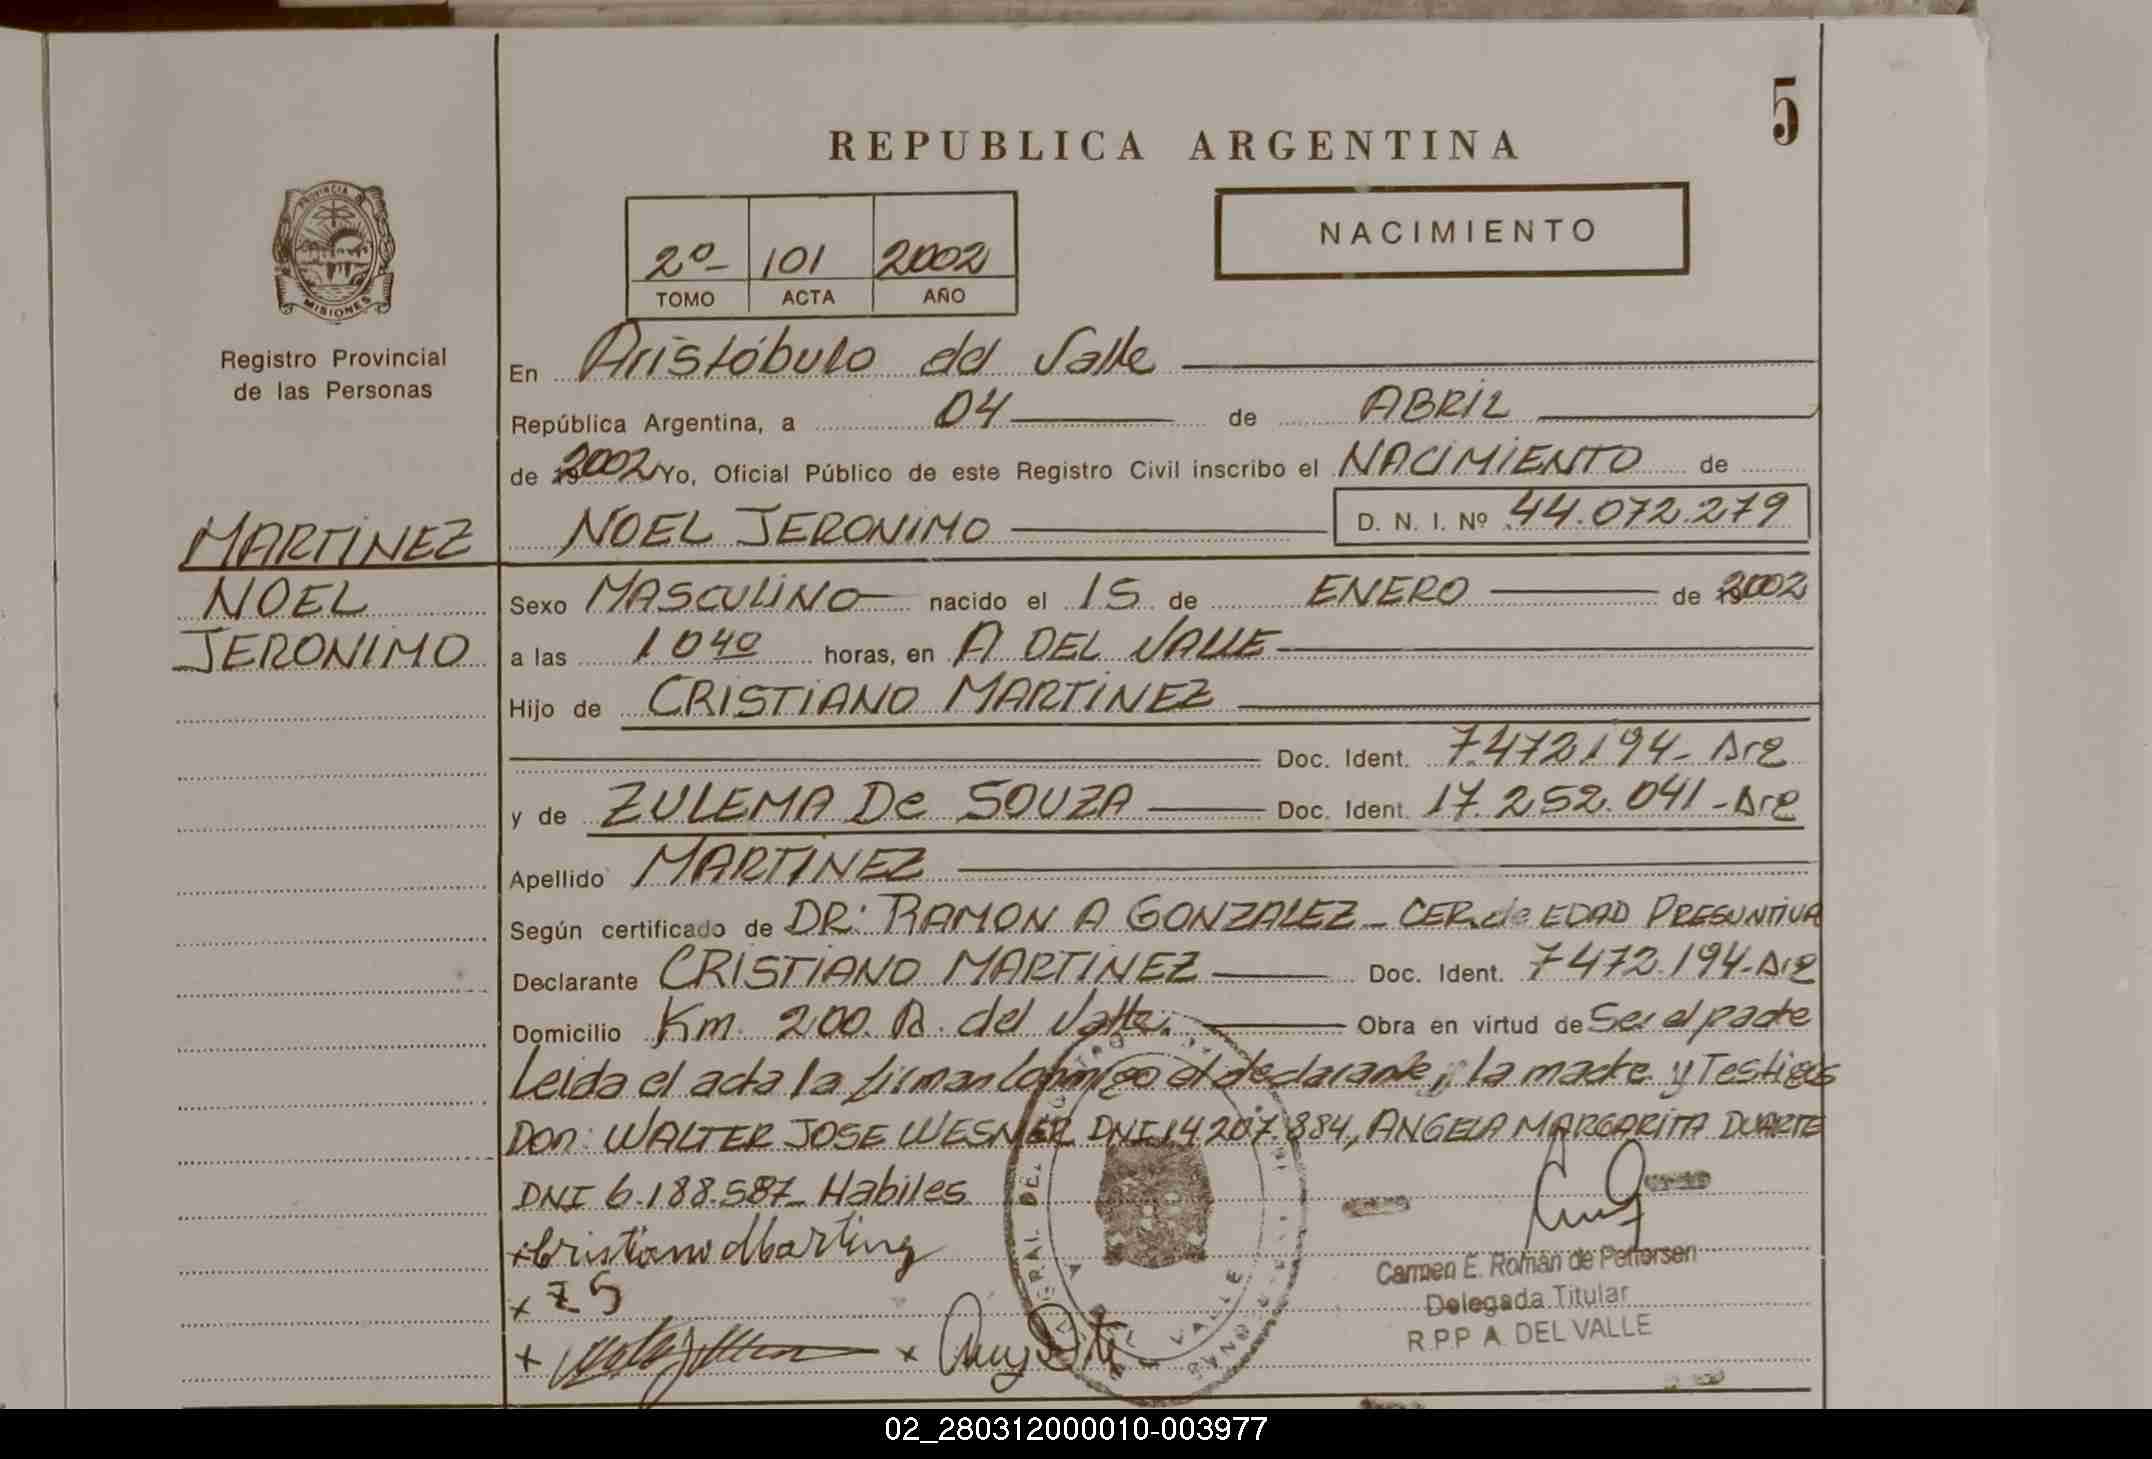 5
REPUBLICA ARGENTINA
NACIMIENTO
2º- 101 2002
TOMO ACTA AÑO
PROVINCIA
MISIONES
Registro Provincial
de las Personas
MARTINEZ
NOEL
JERONIMO
En Aristóbulo del Valle
República Argentina, a 04 de ABRIL
de 2002 Yo, Oficial Público de este Registro Civil inscribo el NACIMIENTO de
NOEL JERONIMO D. N. I. Nº 44.072.279
Sexo MASCULINO nacido el 15 de ENERO de 2002
a las 1040 horas, en A DEL VALLE
Hijo de CRISTIANO MARTINEZ
Doc. Ident. 7.472.194- Arg
y de ZULEMA De SOUZA Doc. Ident. 17.252.041-Arg
Apellido MARTINEZ
Según certificado de DR: RAMON A GONZALEZ - CER. de EDAD PRESUNTIVA
Declarante CRISTIANO MARTINEZ Doc. Ident. 7472.194-Arg
Domicilio Km. 200. A. del Valle. Obra en virtud de Ser el padre
Leida el acta la firman conmigo el declarante, la madre y Testigos
Don: WALTER JOSE WESNER DNI 14207.884, ANGELA MARGARITA DUARTE
DNI 6.188.587_ Habiles
+Cristiano Martinez
x Z S
Carmen E. Román de Pettersen
Delegada Titular
R.P.P A. DEL VALLE
02_280312000010-003977